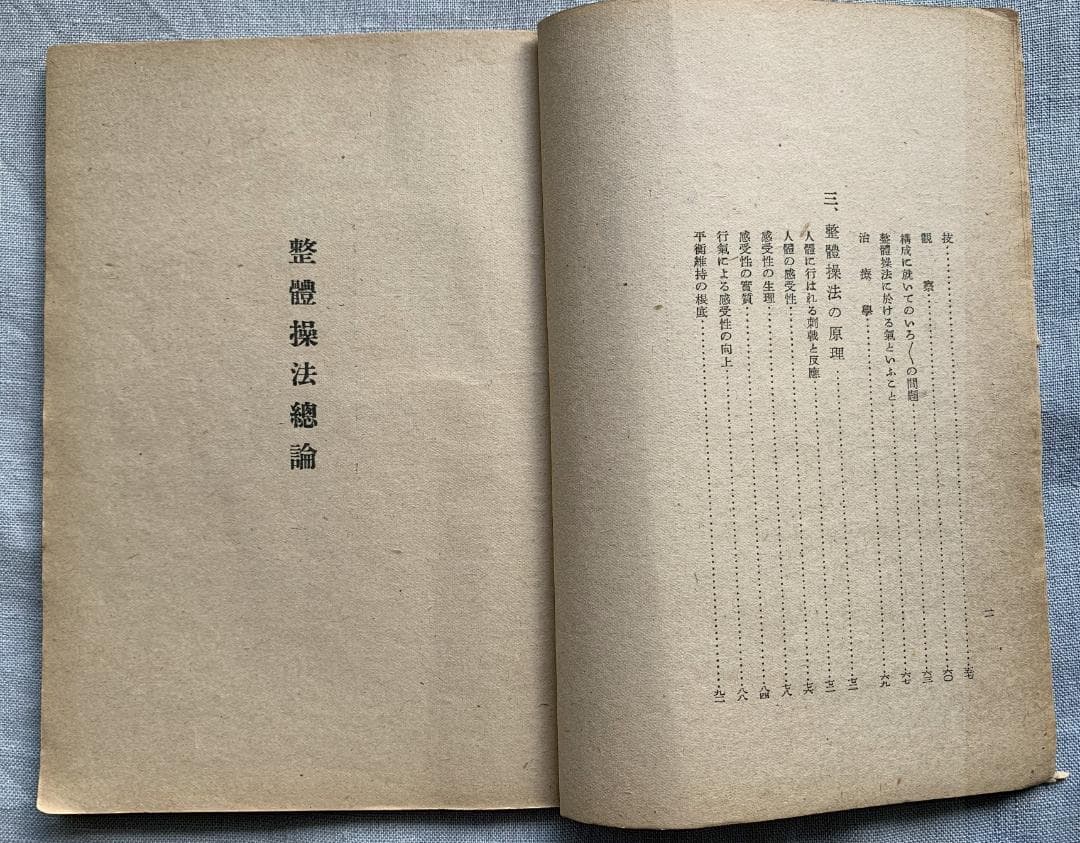 技……五七
観察……六〇
構成に就いてのいろ〱の問題……六三
整體操法に於ける氣といふこと……六七
治療學……六九
三、整體操法の原理……七二
人體に行はれる刺戟と反應……七二
人體の感受性……七六
感受性の生理……七八
感受性の實質……八四
行氣による感受性の向上……八八
平衡維持の根底……九二
二
整體操法總論